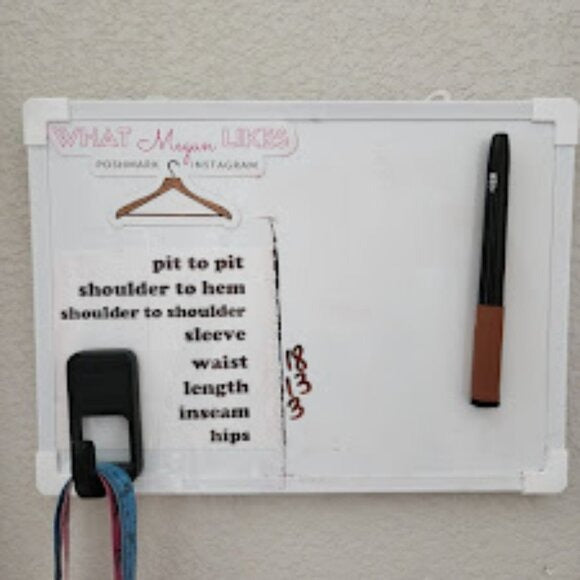 WHAT Megan LIKES
POSHMARK INSTAGRAM
pit to pit
shoulder to hem
shoulder to shoulder
sleeve
waist 18
length 13
inseam 3
hips